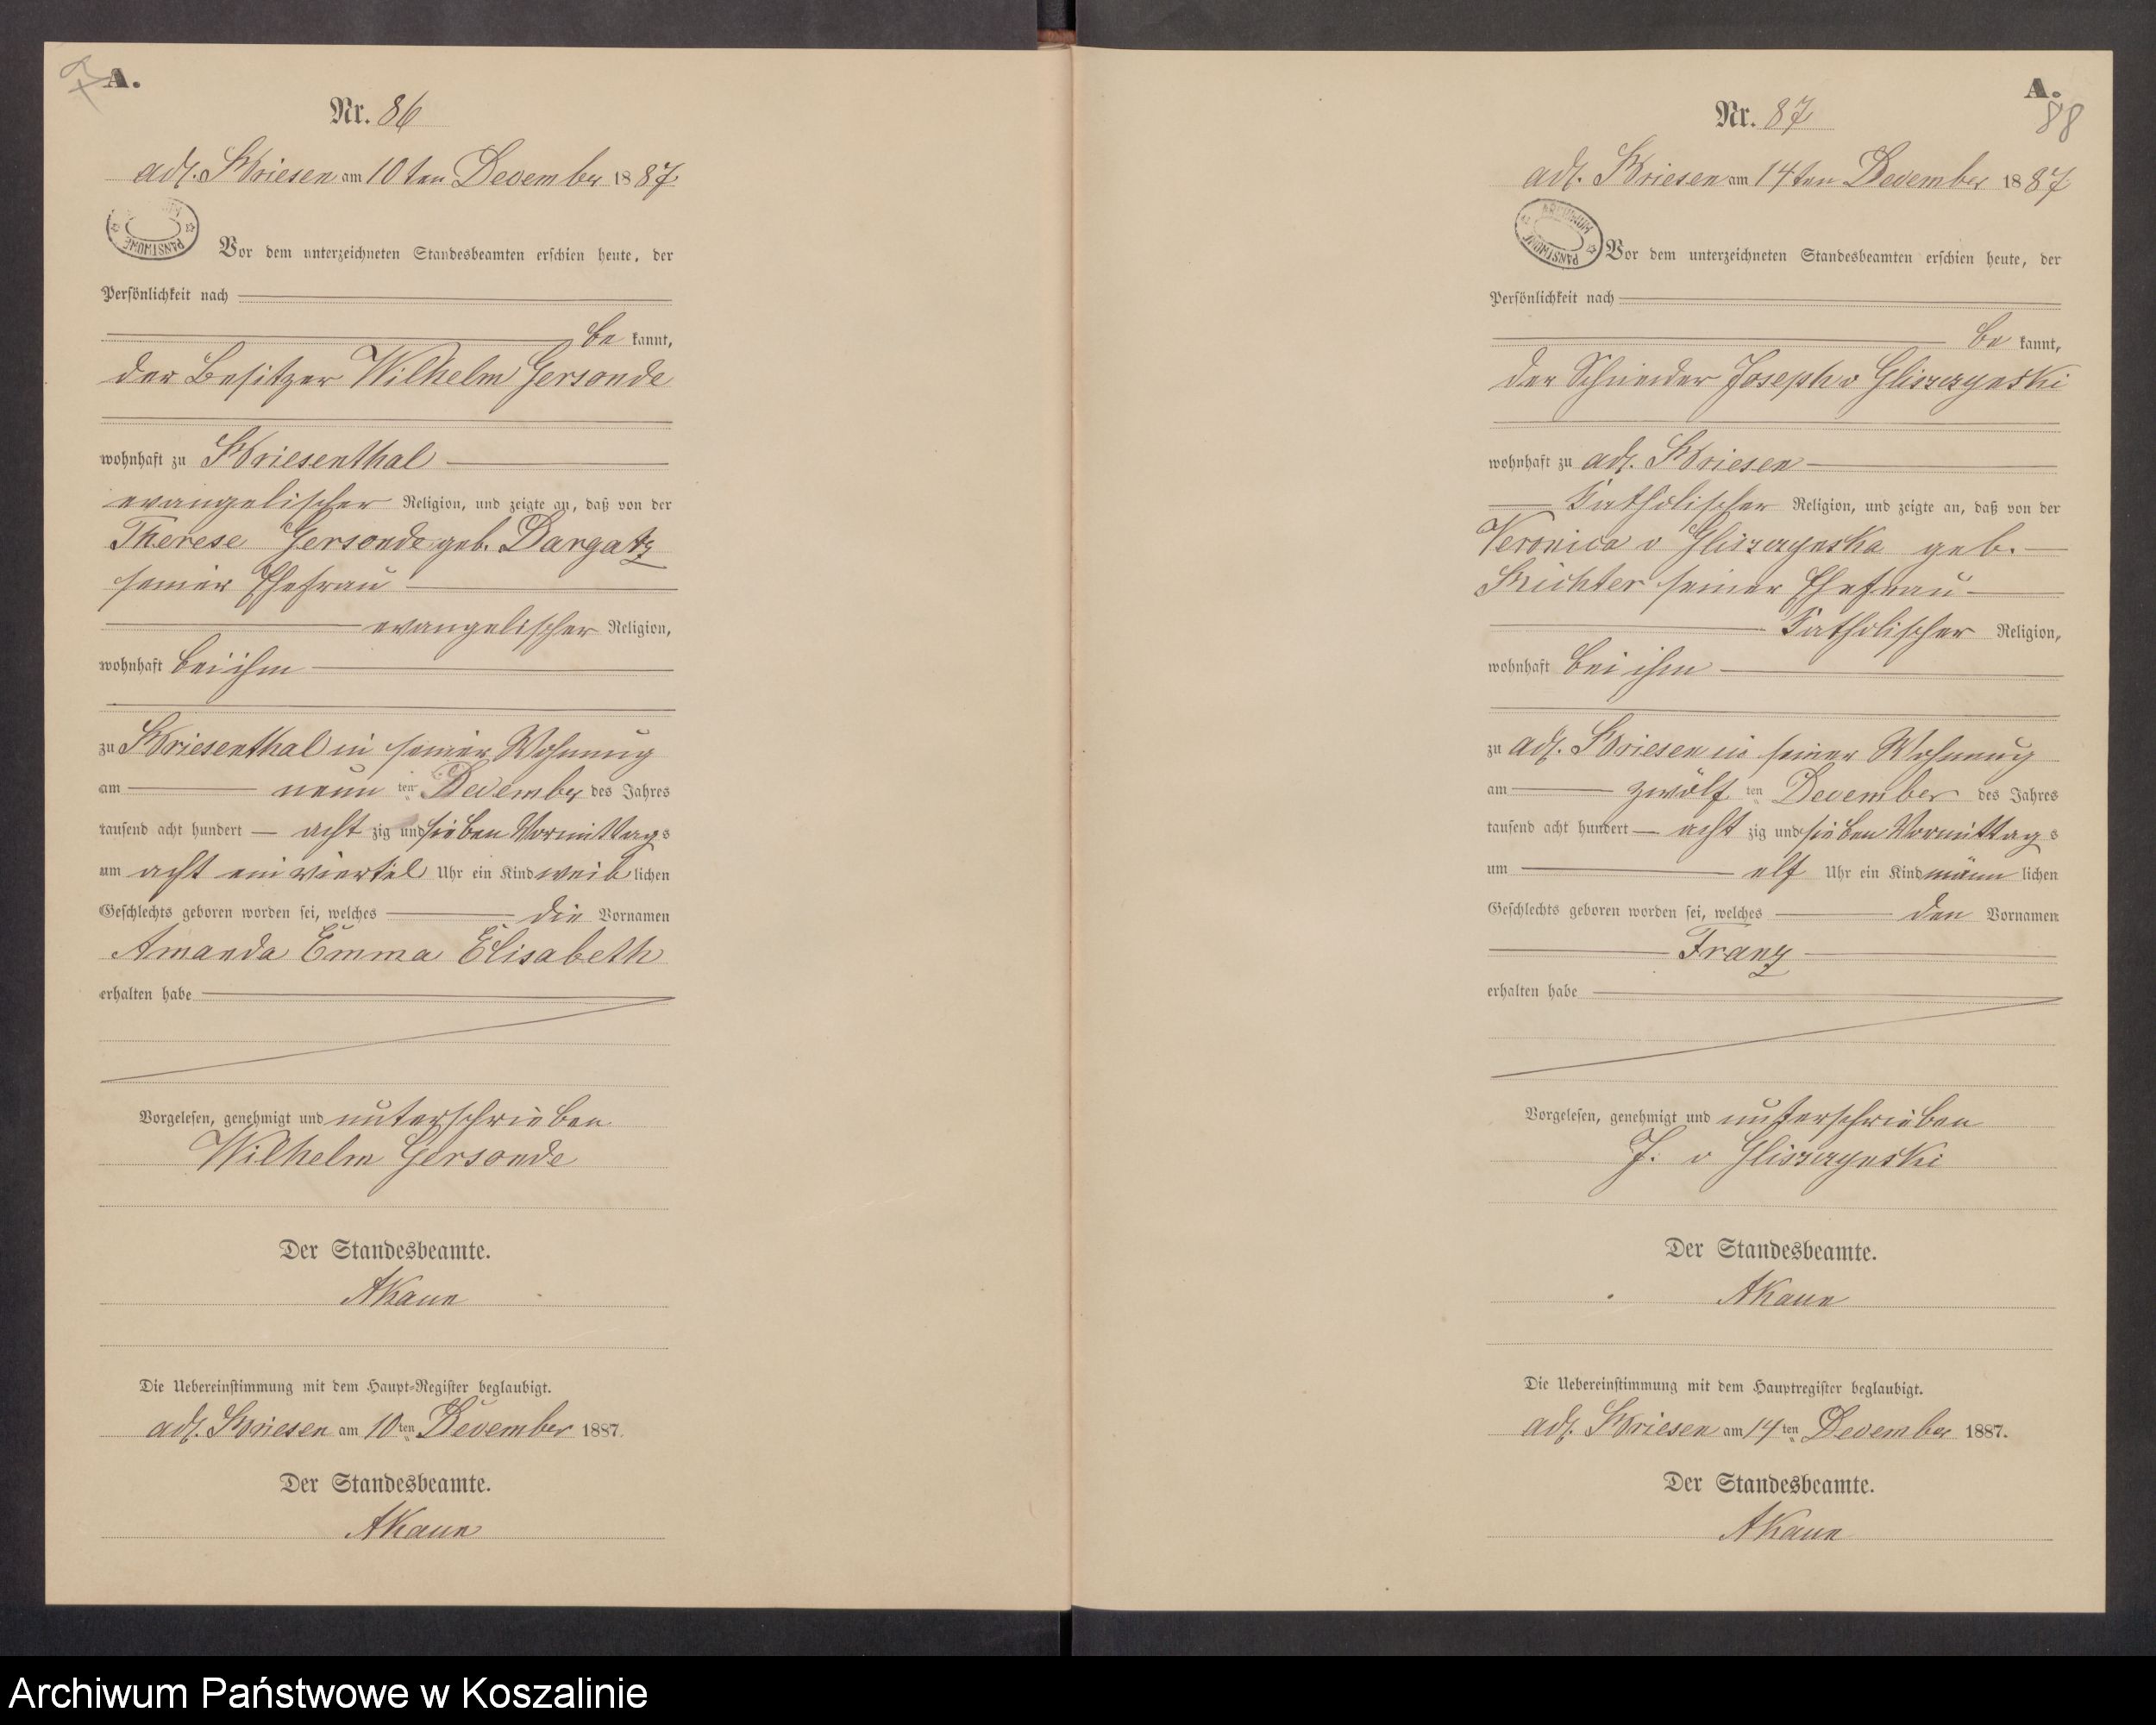 A.
Nr. 86
adl. Briesen am 10ten December 1887
PANSTWOWE
Vor dem unterzeichneten Standesbeamten erschien heute, der
Persönlichkeit nach
be kannt,
der Besitzer Wilhelm Gersonde
wohnhaft zu Briesenthal
evangelischer Religion, und zeigte an, daß von der
Therese Gersonde geb. Dargatz
seiner Ehefrau
evangelischer Religion,
wohnhaft bei ihm
zu Briesenthal in seiner Wohnung
am neun ten December des Jahres
tausend acht hundert acht zig und sieben Vormittags
um acht ein viertel Uhr ein Kind weib lichen
Geschlechts geboren worden sei, welches die Vornamen
Amanda Emma Elisabeth
erhalten habe
Vorgelesen, genehmigt und unterschrieben
Wilhelm Gersonde
Der Standesbeamte.
AKaun
Die Uebereinstimmung mit dem Haupt-Register beglaubigt.
adl. Briesen am 10ten December 1887.
Der Standesbeamte.
AKaun
A.
88
Nr. 87
adl. Briesen am 14ten December 1887
ARCHIWUM PANSTWOWE
Vor dem unterzeichneten Standesbeamten erschien heute, der
Persönlichkeit nach
be kannt,
der Schneider Joseph v Gliszczynski
wohnhaft zu adl. Briesen
katholischer Religion, und zeigte an, daß von der
Veronica v Gliszczynska geb.
Richter seiner Ehefrau
katholischer Religion,
wohnhaft bei ihm
zu adl. Briesen in seiner Wohnung
am zwölf ten December des Jahres
tausend acht hundert acht zig und sieben Vormittags
um elf Uhr ein Kind männ lichen
Geschlechts geboren worden sei, welches den Vornamen
Franz
erhalten habe
Vorgelesen, genehmigt und unterschrieben
J. v Gliszczynski
Der Standesbeamte.
AKaun
Die Uebereinstimmung mit dem Hauptregister beglaubigt.
adl. Briesen am 14ten December 1887.
Der Standesbeamte.
AKaun
Archiwum Państwowe w Koszalinie